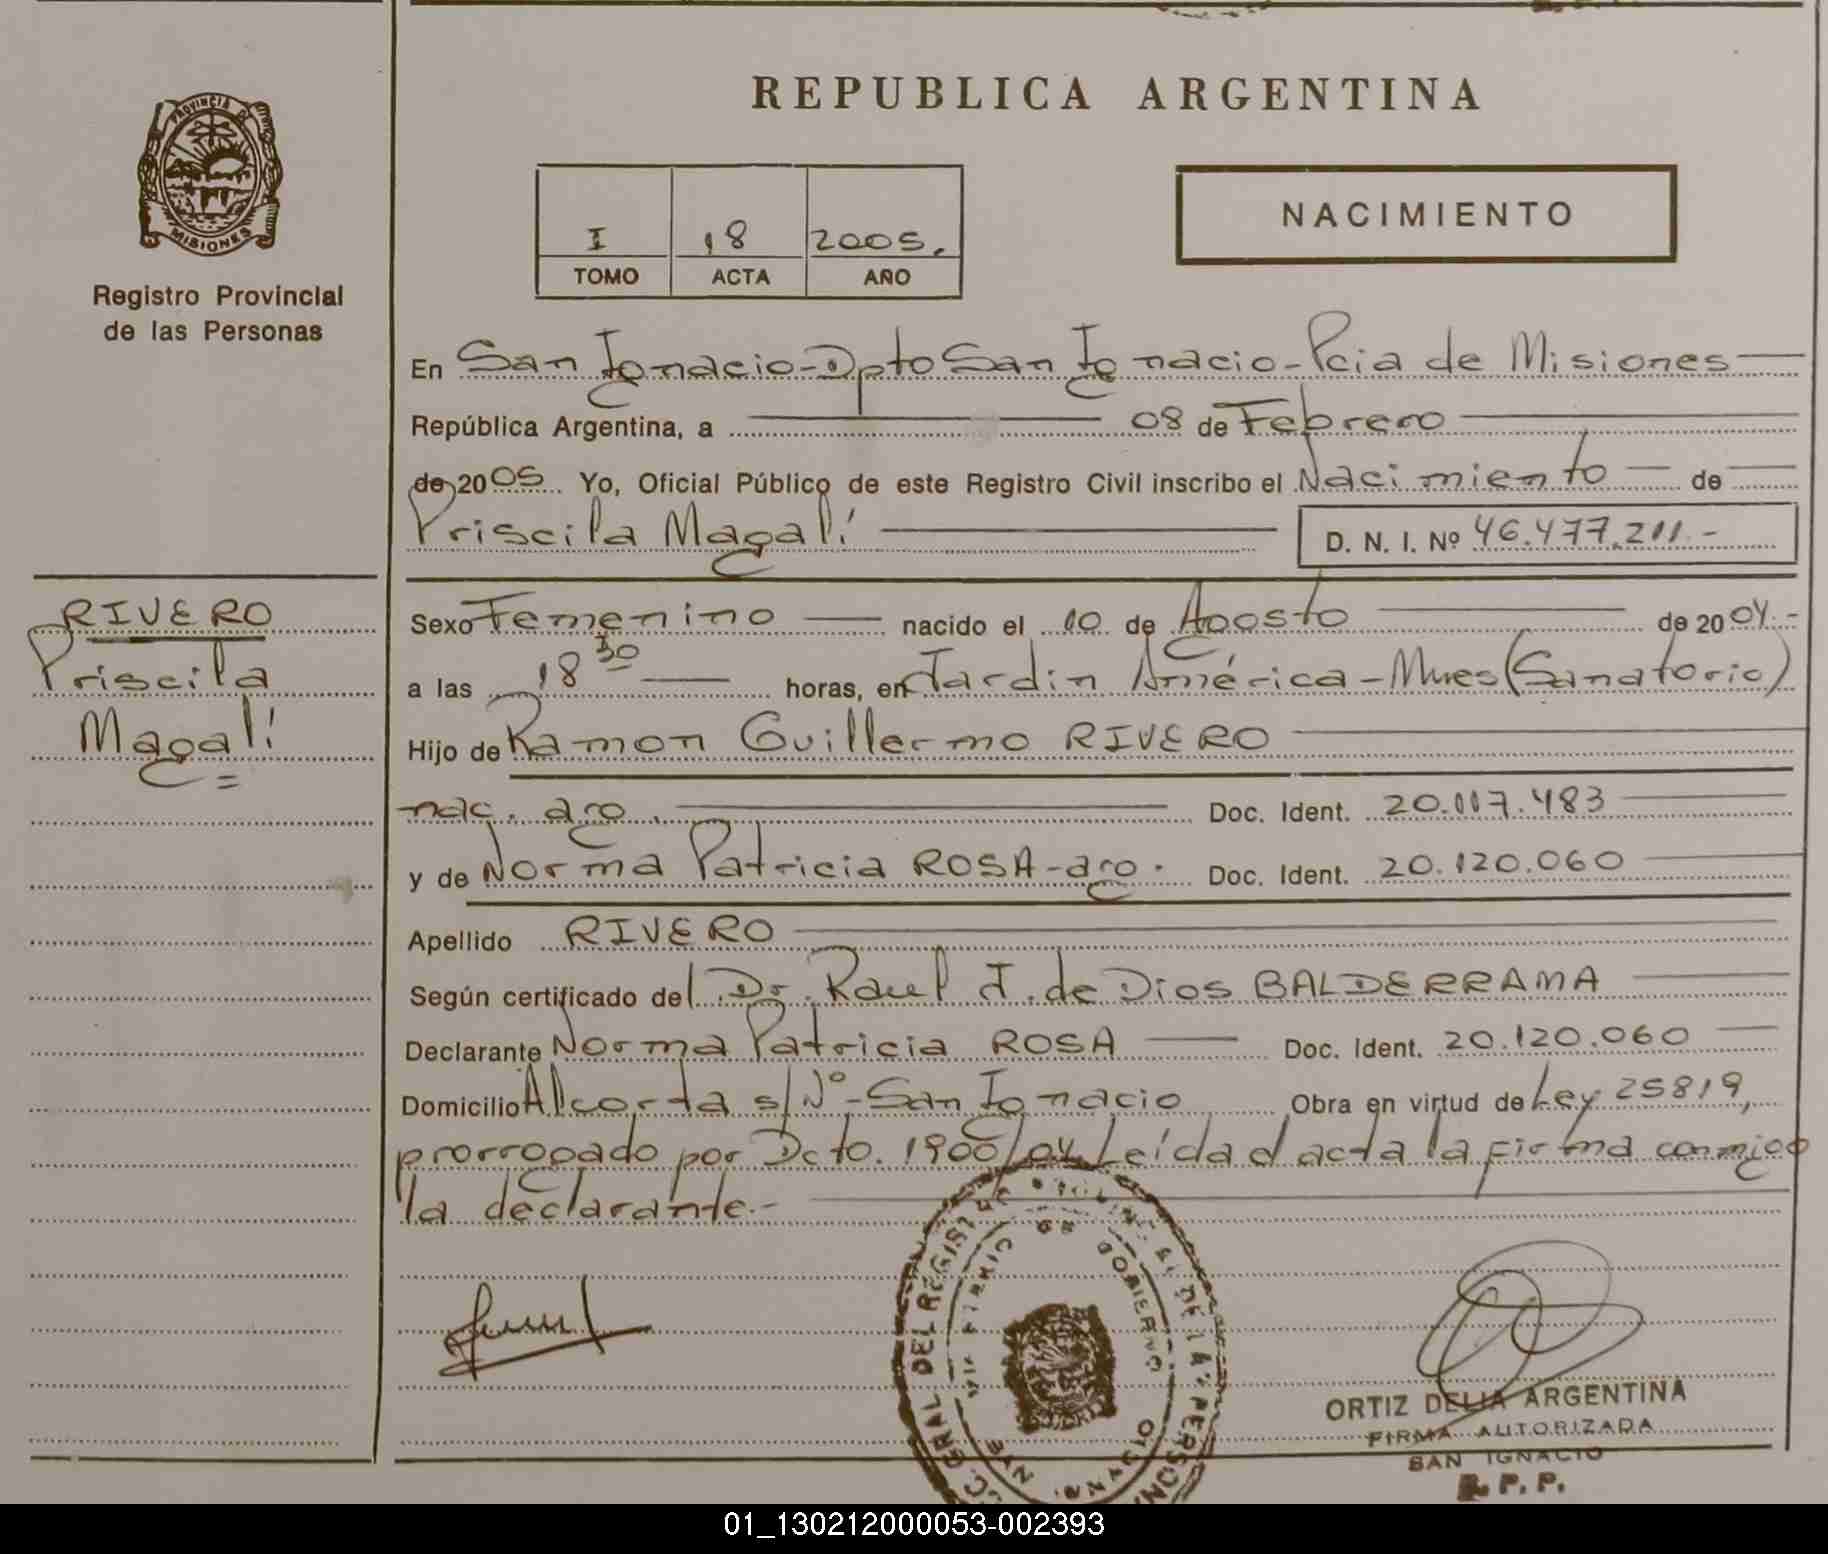 PROVINCIA DE
MISIONES
Registro Provincial
de las Personas
RIVERO
Priscila
Magalí
REPUBLICA ARGENTINA
I 18 2005.
TOMO ACTA AÑO
NACIMIENTO
En San Ignacio-Dpto San Ignacio-Pcia de Misiones
República Argentina, a 08 de Febrero
de 2005 Yo, Oficial Público de este Registro Civil inscribo el Nacimiento de
Priscila Magalí D. N. I. Nº 46.477.211.-
Sexo Femenino nacido el 10 de Agosto de 2004.-
a las 18 30 horas, en Jardin América-Mnes (Sanatorio)
Hijo de Ramon Guillermo RIVERO
nac. arg. Doc. Ident. 20.117.483
y de Norma Patricia ROSA-arg. Doc. Ident. 20.120.060
Apellido RIVERO
Según certificado del Dr. Raul J. de Dios BALDERRAMA
Declarante Norma Patricia ROSA Doc. Ident. 20.120.060
Domicilio Alcorta s/Nº-San Ignacio Obra en virtud de Ley 25819,
prorrogado por Dcto. 1900/04 Leída el acta la firma conmigo
la declarante.-
GRAL DEL REGIST DE LAS PERSON
GOBIERNO
ORTIZ DELIA ARGENTINA
FIRMA AUTORIZADA
SAN IGNACIO
R. P. P.
01_130212000053-002393